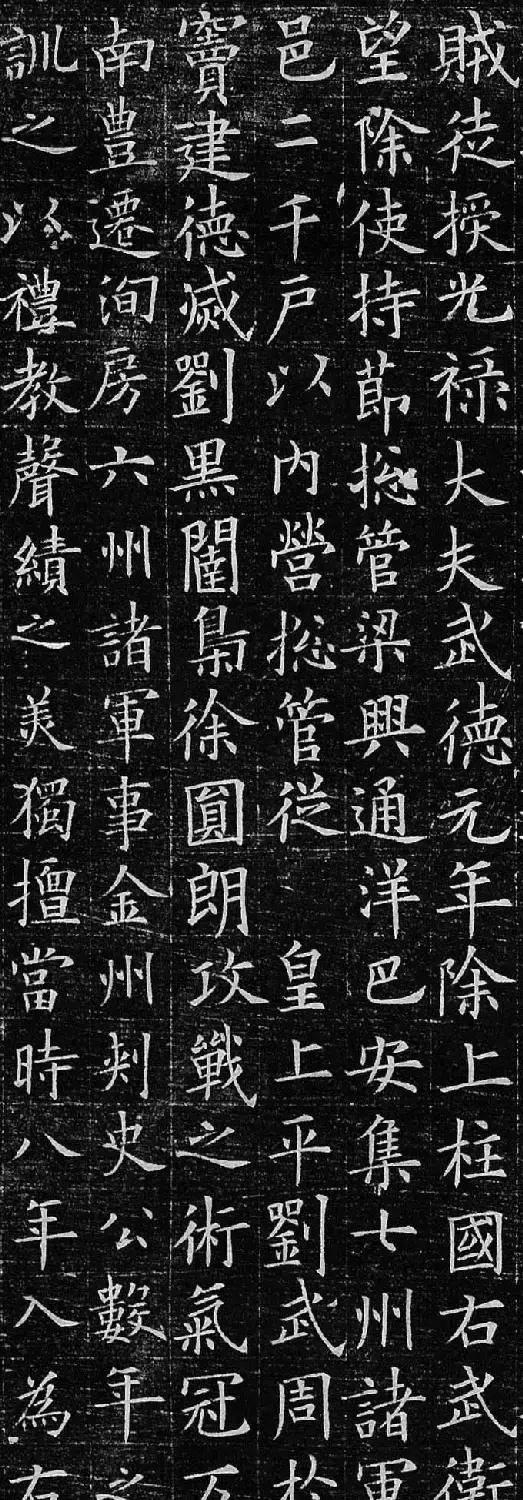 賊徒授光祿大夫武德元年除上柱國右武衛
望除使持節摠管梁興通洋巴安集七州諸軍
邑二千戶以內營摠管從 皇上平劉武周於
竇建德滅劉黑闥梟徐圓朗攻戰之術氣冠万
南豊遷洵房六州諸軍事金州刾史公數年之
訓之以禮教聲績之美獨擅當時八年入為右